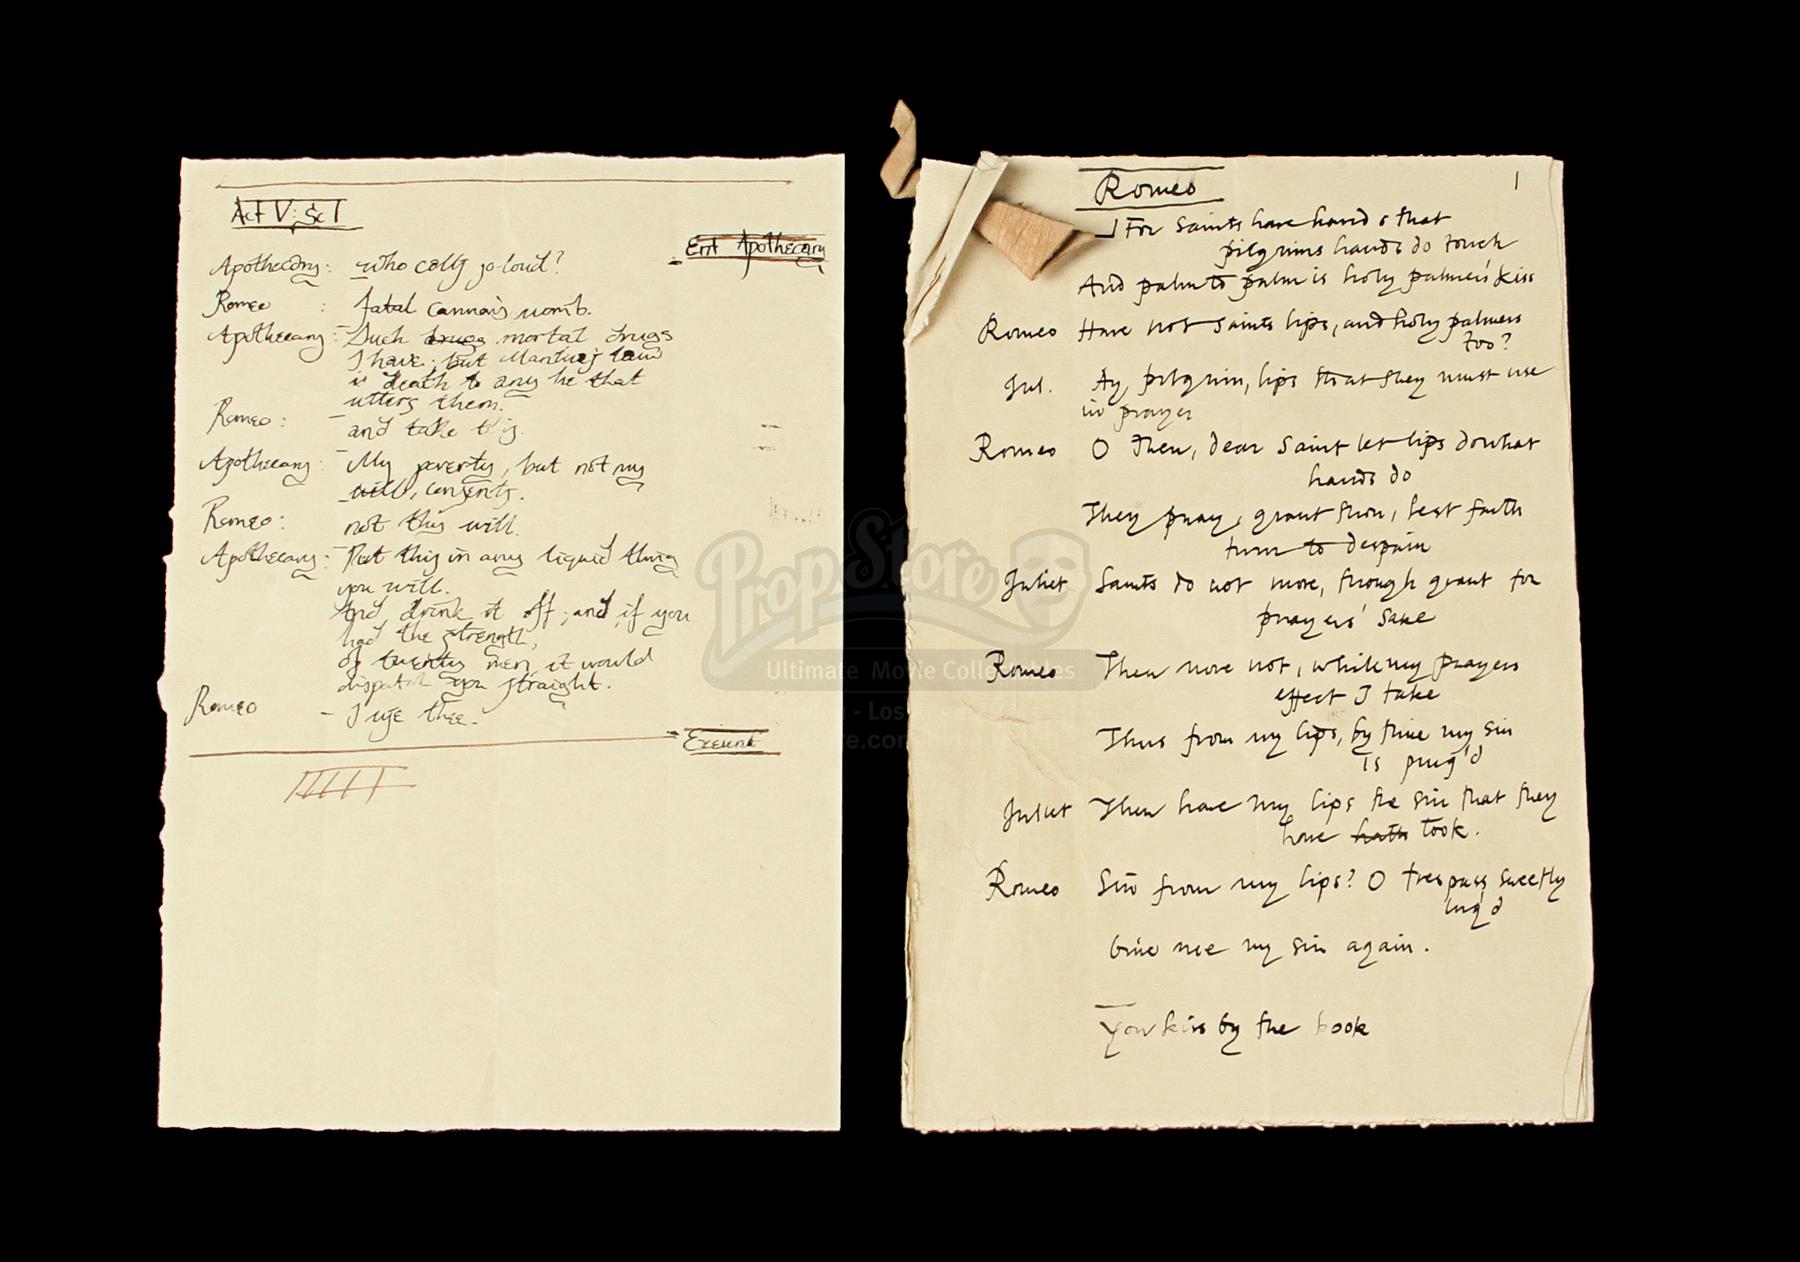 Act V: Sc I
Ent Apothecary
Apothecary: who calls so loud?
Romeo : fatal cannons womb.
Apothecary: Such drugs mortal drugs
I have; but Mantua's law
is death to any he that
utters them.
Romeo: and take this.
Apothecary: My poverty, but not my
will, consents.
Romeo: not this will.
Apothecary: Put this in any liquid thing
you will.
And drink it off; and, if you
had the strength,
of twenty men, it would
dispatch you straight.
Romeo - I use thee.
Exeunt
Romeo
1
For Saints have hands that
pilgrims hands do touch
And palm to palm is holy palmers' kiss
Romeo Have not saints lips, and holy palmers
too?
Jul. Ay, pilgrim, lips that they must use
in prayer
Romeo O Then, dear Saint let lips do what
hands do
They pray, grant thou, lest faith
turn to despair
Juliet Saints do not move, though grant for
prayers' sake
Romeo Then move not, while my prayers
effect I take
Thus from my lips, by thine my sin
is purg'd
Juliet Then have my lips the sin that they
have hath took.
Romeo Sin from my lips? O trespass sweetly
urg'd
Give me my sin again.
You kiss by the book
PropStore
Ultimate Movie Collectibles